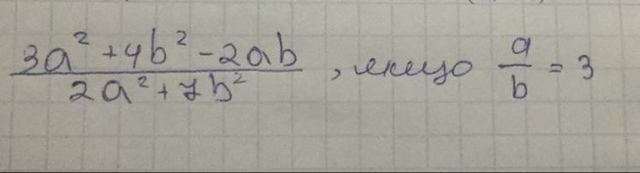 (3a² + 4b² - 2ab) / (2a² + 7b²), якщо a/b = 3